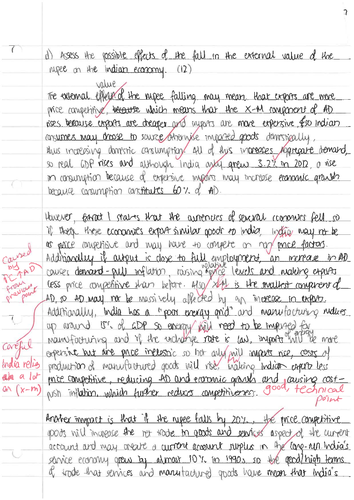 d) Assess the possible effects of the fall in the external value of the
rupee on the Indian economy. (12)
value
The external effect of the rupee falling may mean that exports are more
price competitive because which means that the X-M component of AD
rises because exports are cheaper and imports are more expensive so Indian
consumers may choose to source otherwise imported goods domestically,
thus increasing domestic consumption. All of this increases aggregate demand,
so real GDP rises and although India only grew 3.2% in 2012, a rise
in consumption because of expensive imports may increase economic growth
because consumption constitutes 60% of AD.
However, extract 1 states that the currencies of several economies fell, so
if these economies export similar goods to India, India may not be
as price competitive and may have to compete on non price factors.
Additionally if output is close to full employment, an increase in AD
causes demand-pull inflation, raising price levels and making exports
less price competitive than before. is the smallest component of
AD, so AD may not be massively affected by an increase in exports.
Additionally, India has a "poor energy grid" and manufacturing makes
up around 15% of GDP so energy will need to be imported for
manufacturing and if the exchange rate is low, imports will be more
of energy
expensive but are price inelastic so not only will imports rise, costs of
production of manufactured goods will rise, making Indian exports less
price competitive, reducing AD and economic growth and causing cost-
push inflation, which further reduces competitiveness.
good technical
point
Caused
by
↑C ↑AD
from
previous
point
Careful
India relies
a lot
on (x-m)
Another impact is that if the rupee falls by 20%, the price competitive
goods will increase the net trade in goods and services aspect of the current
account and may create a current account surplus in the long-run. India's
service economy grew by almost 10% in 1990s, so the good/high terms
of trade that services and manufactured goods have mean that India's